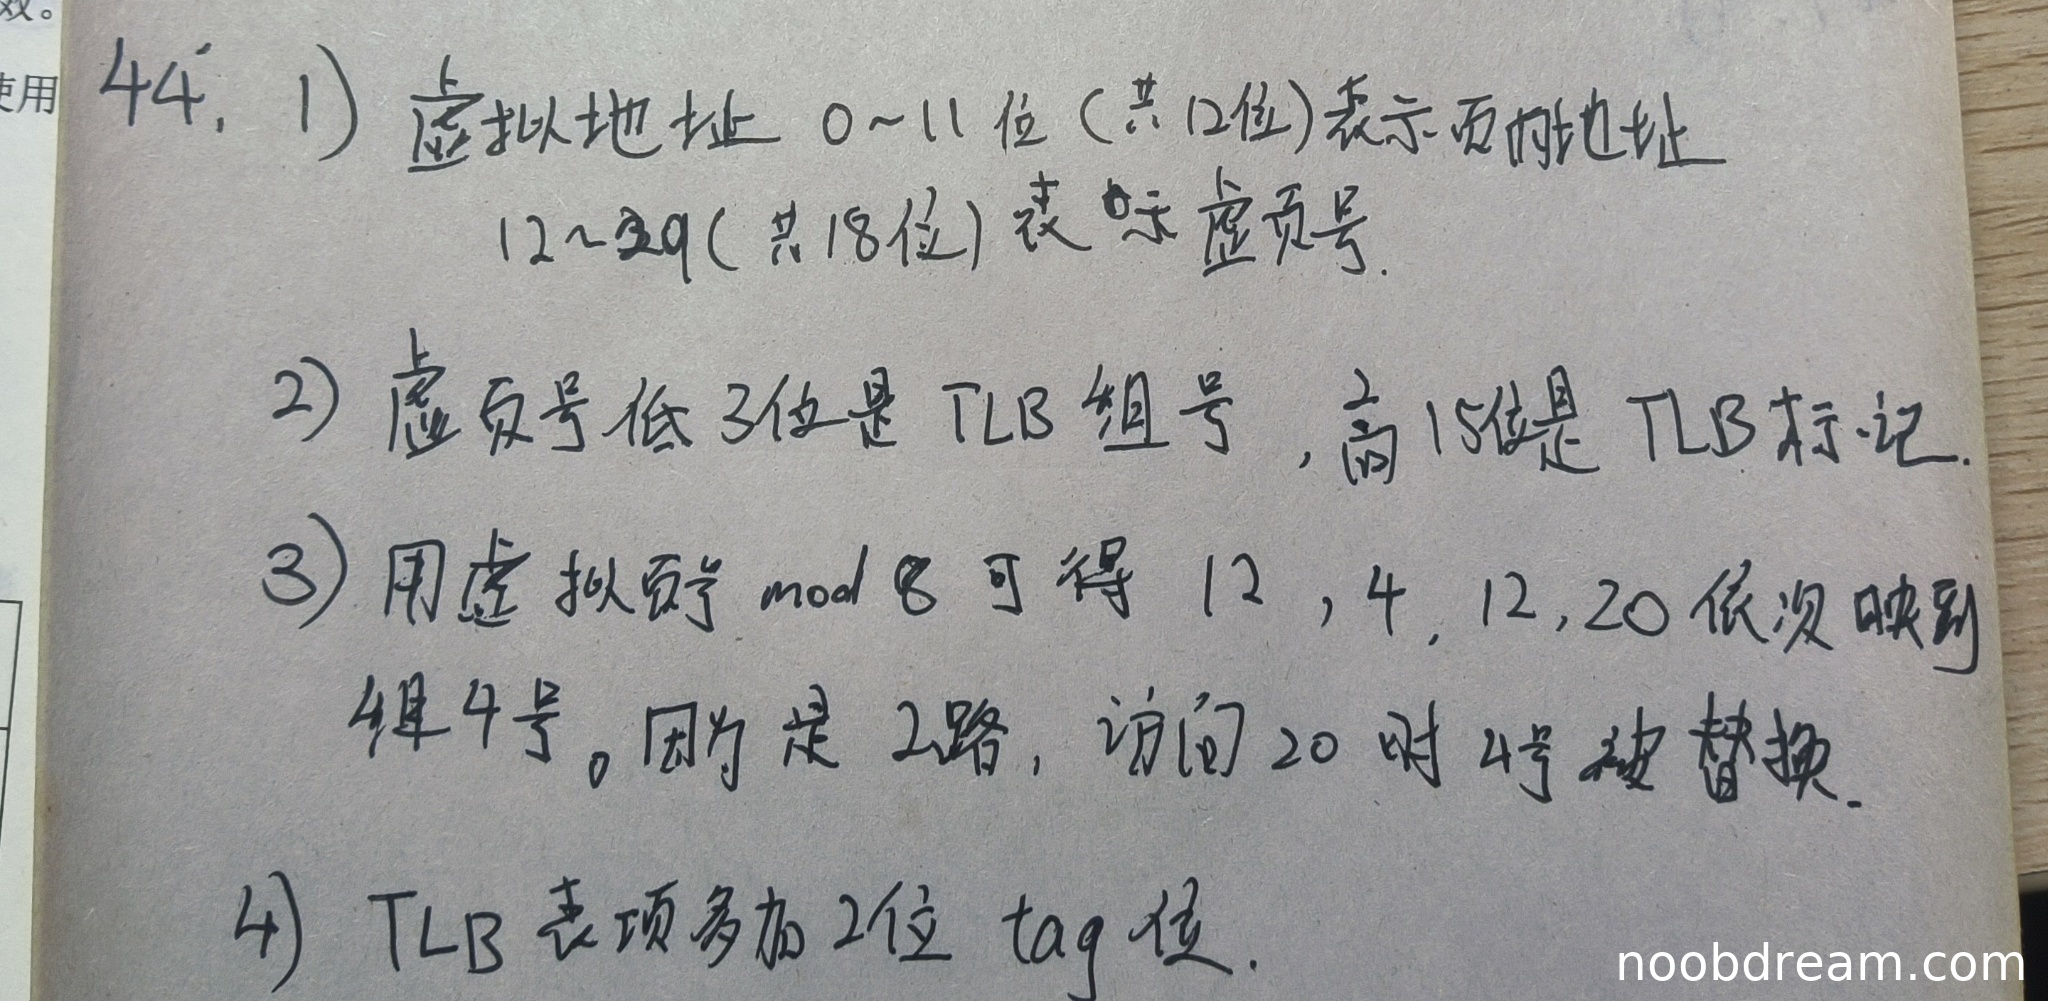 效。
使用
44. 1) 虚拟地址 0~11位(共12位)表示页内地址
12~29(共18位)表示虚页号.
2) 虚页号低3位是TLB组号,高15位是TLB标记.
3) 用虚拟页号 mod 8 可得 12,4,12,20依次映到
组4号。因为是2路,访问20时4号被替换.
4) TLB表项多加2位 tag位.
noobdream.com